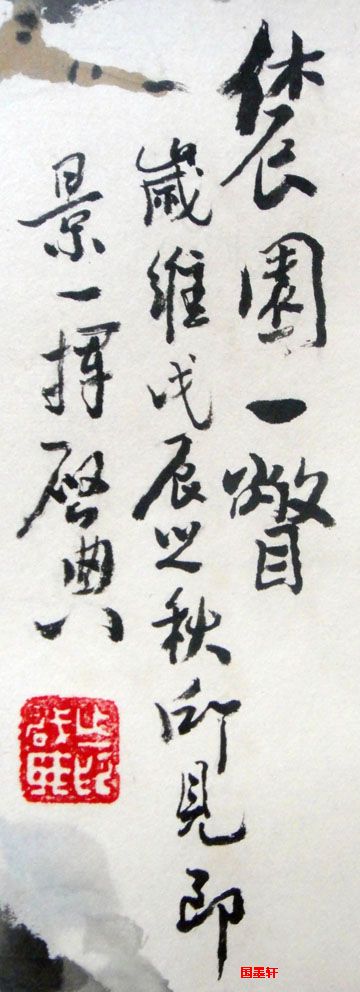 辳園一瞥
歲維戊辰之秋所見即
景一揮啓典
国墨轩